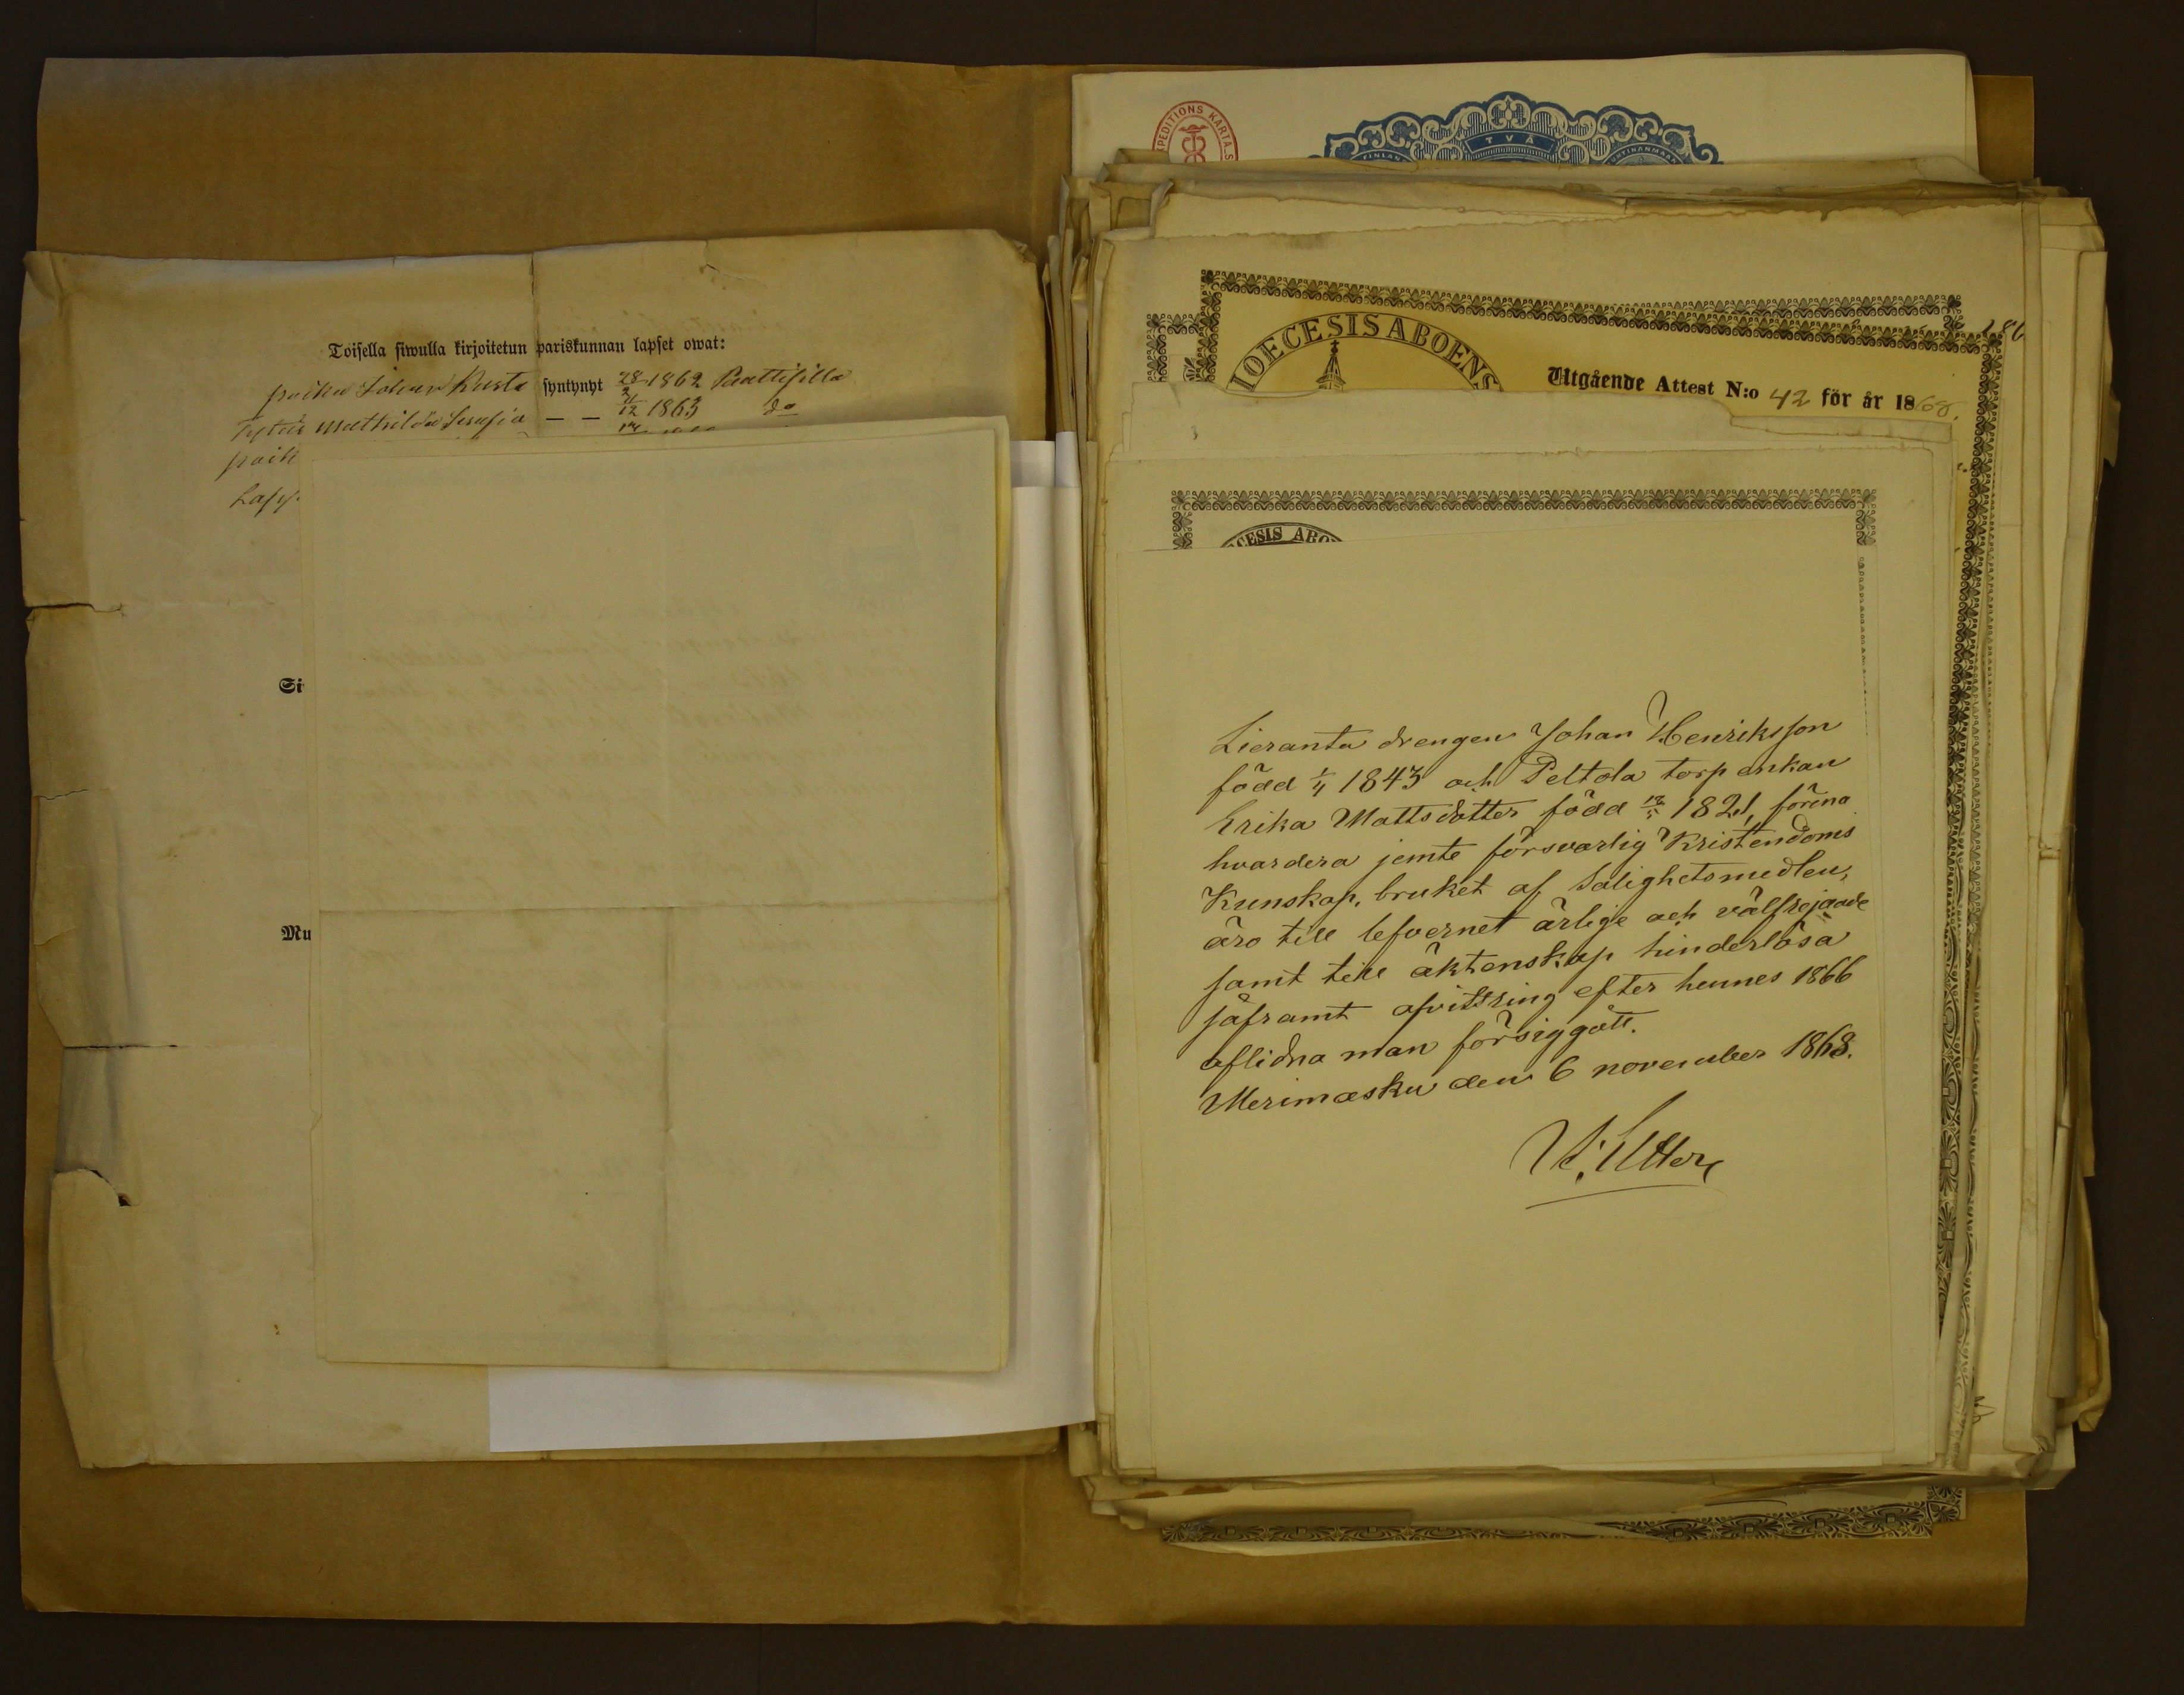 Toisella siwulla kirjoitetun pariskunnan lapset owat:
poika Johan Kusta syntynyt 28/2 1862 Paattisilla
Tytär Mathilda Serafia — — 11/12 1863 do
poik
Lapp
Si
Mu
EXPEDITIONS KARTA.S
TVÅ
FINLAN
IOECESIS ABOENS
186
Utgående Attest N:o 42 för år 1868.
CESIS ABO
Lieranta drengen Johan Henriksson
född 1/4 1843 och Peltola torp enkan
Erika Mattsdotter född 12/5 1821, förena
hvardera jemte försvarlig Kristendoms
Kunskap, bruket af Salighetsmedlen,
äro till lefvernet ärlige och välfrejdade
samt till äktenskap hinderlösa
såframt afvittring efter hennes 1866
aflidna man försiggått.
Merimasku den 6 november 1868.